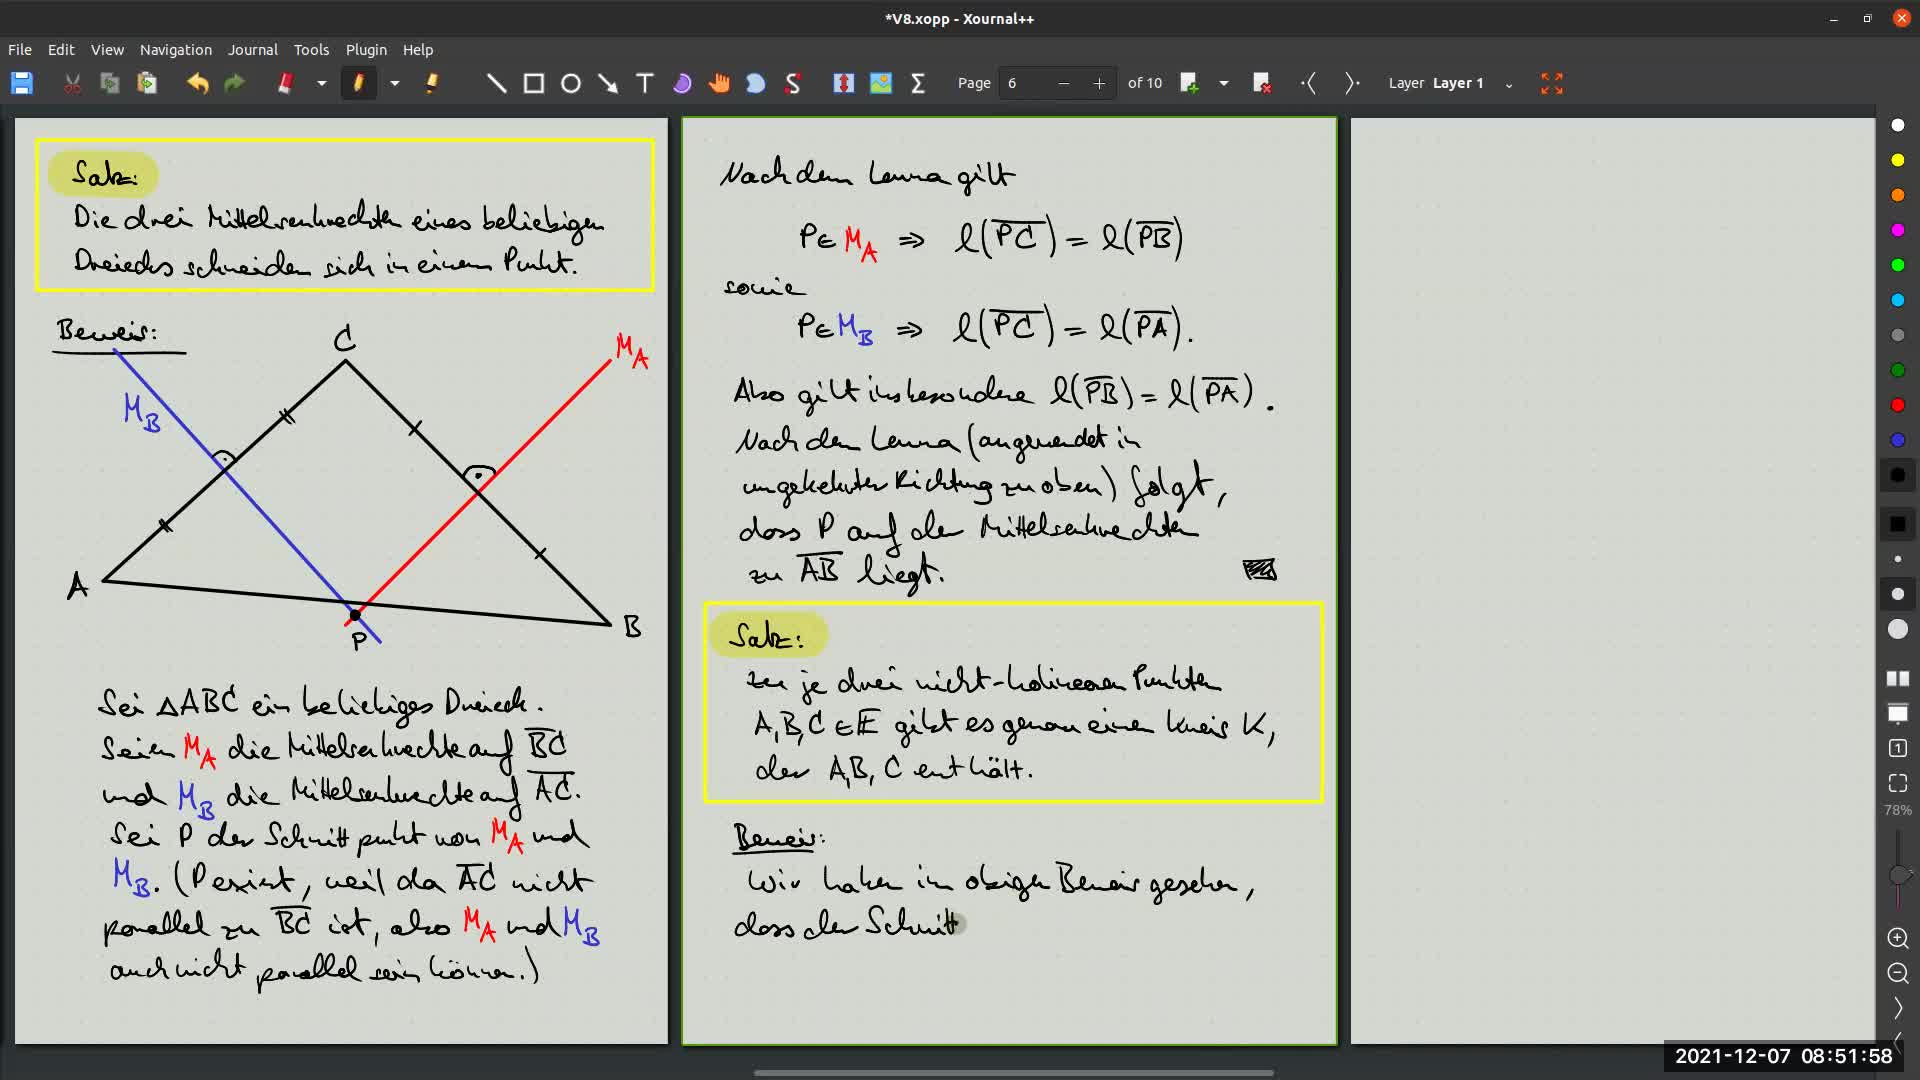 *V8.xopp - Xournal++
File Edit View Navigation Journal Tools Plugin Help
Page 6 of 10 Layer Layer 1
Satz:
Die drei Mittelsenkrechten eines beliebigen
Dreiecks schneiden sich in einem Punkt.
Beweis:
C
M_A
M_B
A
B
P
Sei △ABC ein beliebiges Dreieck.
Seien M_A die Mittelsenkrechte auf \overline{BC}
und M_B die Mittelsenkrechte auf \overline{AC}.
Sei P der Schnittpunkt von M_A und
M_B. (P exist, weil da \overline{AC} nicht
parallel zu \overline{BC} ist, also M_A und M_B
auch nicht parallel sein können.)
Nach dem Lemma gilt
P∈M_A ⇒ l(\overline{PC}) = l(\overline{PB})
sowie
P∈M_B ⇒ l(\overline{PC}) = l(\overline{PA}).
Also gilt insbesondere l(\overline{PB}) = l(\overline{PA}).
Nach dem Lemma (angewendet in
umgekehrter Richtung zu oben) folgt,
dass P auf der Mittelsenkrechten
zu \overline{AB} liegt.
Satz:
Zu je drei nicht-kolinearen Punkten
A,B,C ∈ E gibt es genau einen Kreis K,
der A,B,C enthält.
Beweis:
Wir haben im obigen Beweis gesehen,
dass der Schnitt
78%
2021-12-07 08:51:58